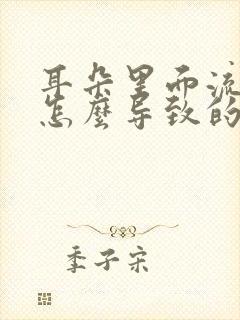 耳朵里面流
怎麼导致的
季子宋